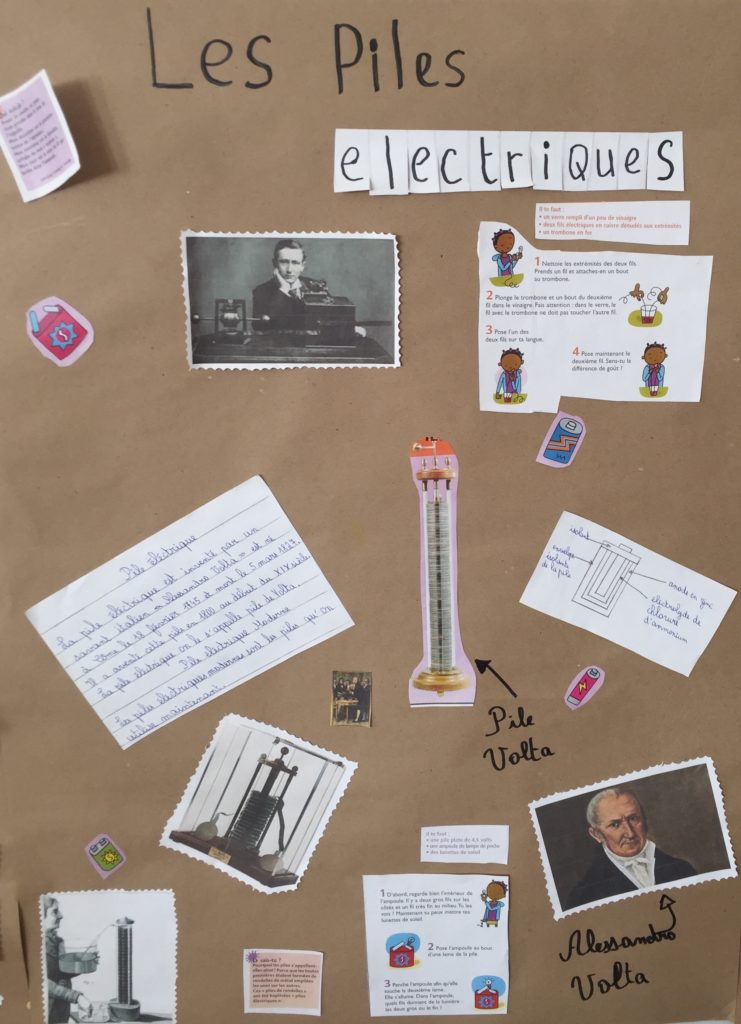 Les Piles
electriques
Il te faut :
• un verre rempli d'un peu de vinaigre
• deux fils électriques en cuivre dénudés aux extrémités
• un trombone en fer
1 Nettoie les extrémités des deux fils.
Prends un fil et attaches-en un bout
au trombone.
2 Plonge le trombone et un bout du deuxième
fil dans le vinaigre. Fais attention : dans le verre, le
fil avec le trombone ne doit pas toucher l'autre fil.
3 Pose l'un des
deux fils sur ta langue.
4 Pose maintenant le
deuxième fil. Sens-tu la
différence de goût ?
Pile électrique
La pile électrique est inventé par un
savant italien « Alessandro Volta » est né
à Côme le 18 février 1745 et mort le 5 mars 1827.
Il a inventé cette pile en 1800 au début du XIX siècle
La pile électrique on le s'appelle pile de Volta.
Pile électrique Moderne
La pile électriques modernes sont les piles qu'on
utilise maintenant.
isolant
enveloppe
isolante
de la pile
anode en zinc
électrolyde de
chlorure
d'ammonium
Pile
Volta
Il te faut :
• une pile plate de 4,5 volts
• une ampoule de lampe de poche
• des lunettes de soleil
1 D'abord, regarde bien l'intérieur de
l'ampoule. Il y a deux gros fils sur les
côtés et un fil très fin au milieu. Tu les
vois ? Maintenant tu peux mettre tes
lunettes de soleil.
2 Pose l'ampoule au bout
d'une lame de la pile.
3 Penche l'ampoule afin qu'elle
touche la deuxième lame.
Elle s'allume. Dans l'ampoule,
quels fils donnent de la lumière :
les deux gros ou le fin ?
Alessandro
Volta
Le sais-tu ?
Pourquoi les piles s'appellent-
elles ainsi ? Parce que les toutes
premières étaient formées de
rondelles de métal empilées
les unes sur les autres.
Ces « piles de rondelles »
ont été baptisées « piles
électriques ».